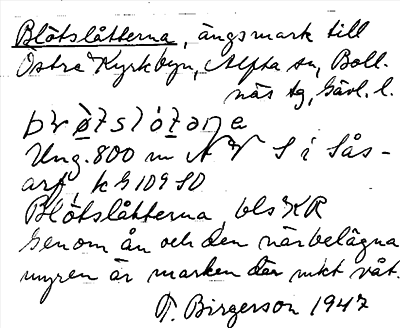 Blötslåtterna, ängsmark till
Östra Kyrkbyn, Alfta sn, Boll-
näs tg, Gävl. l.
Ung. 800 m N V S i Sås-
arf, k G 109 SO
Blötslåtterna bls KR
Genom ån och den närbelägna
myren är marken där mkt våt.
T. Birgerson 1947